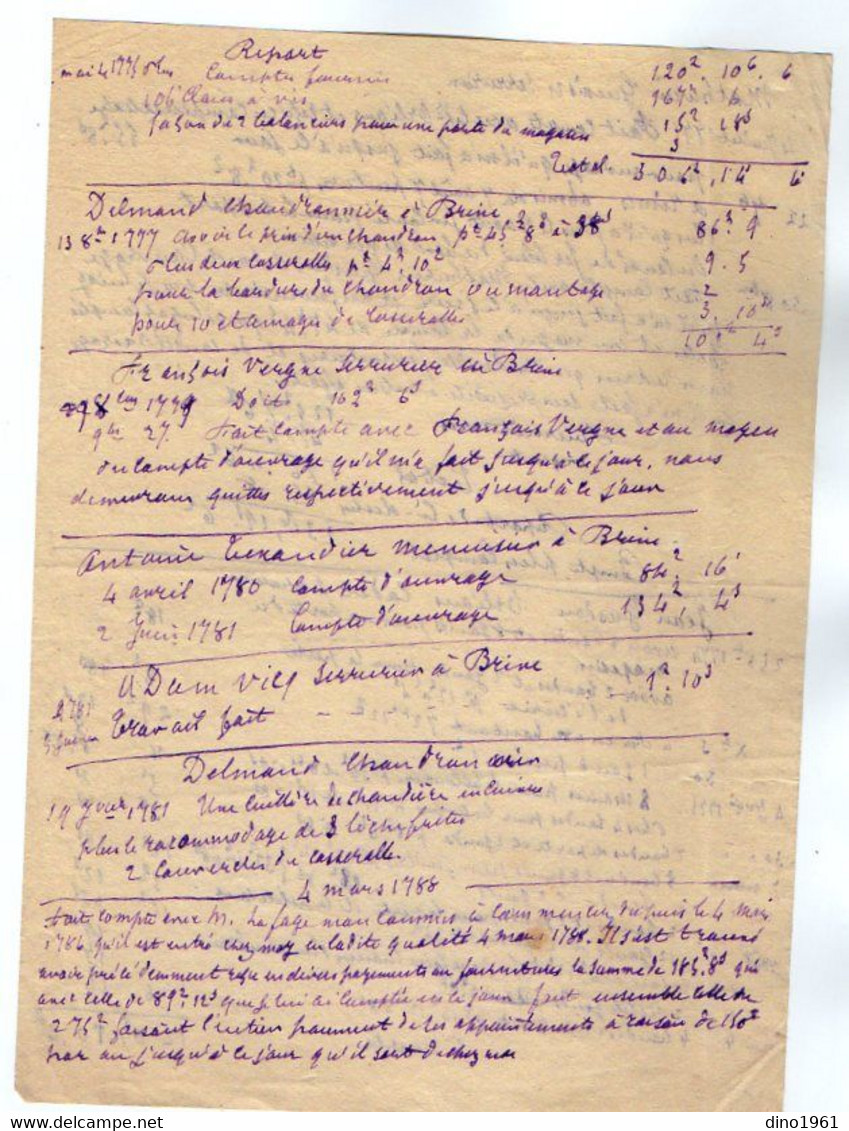 Report 120² . 10⁶ . 6
mai le 1775 plus Comptes fournis 167² 6
106 Clous à vis 15² 18ˢ
façon de 2 balanciers pour une porte de magasin 3
Total 306² , 14 6
Delmand Chaudronnier à Brive
13 8bre 1777 avoir le prix d'un Chaudron pt 45² 8ˢ à 38ˢ 86² . 9
Plus deux Casserolles pt 4² 10² 9 . 5
pour la bandure du Chaudron ou mantage 2
pour 10 etamages de Casserolles 3. 10
101 4ˢ
François Vergne Serrurier à Brive
1779 Doit 162² 6ˢ
9bre 27. Fait Compte avec François Vergne et au moyen
du Compte d'ouvrage qu'il m'a fait jusqu'à ce jour, nous
demeurons quittes respectivement jusqu'à ce jour
Antoine Terrandier Menuisier à Brive
4 avril 1780 Compte d'ouvrage 84² 16ˢ
2 Juin 1781 Compte d'ouvrage 134² 4ˢ
Adam Vieq Serrurier à Brive
1781 Travail fait - - - 1² . 10ˢ
Delmand Chaudronnier
19 Janvier 1781 Une Cuillère de chaudière en Cuivre
plus le racommodage de 3 lèchefrites
2 Couvercles de Casserolle
4 mars 1788
Fait Compte avec M. Lafage mon Commis à Commencer depuis le 4 Mars
1786 qu'il est entré chez moy en ladite qualité 4 mars 1788. Il s'est trouvé
avoir précédemment reçu en divers payements ou fournitures la Somme de 185² 8ˢ qui
avec celle de 89² 12ˢ que je lui ai Comptée ce jour font ensemble Celle de
275² faisant l'entier paiement de ses appointements à raison de 150²
par an jusqu'à ce jour qu'il sort de chez moi
dino1961